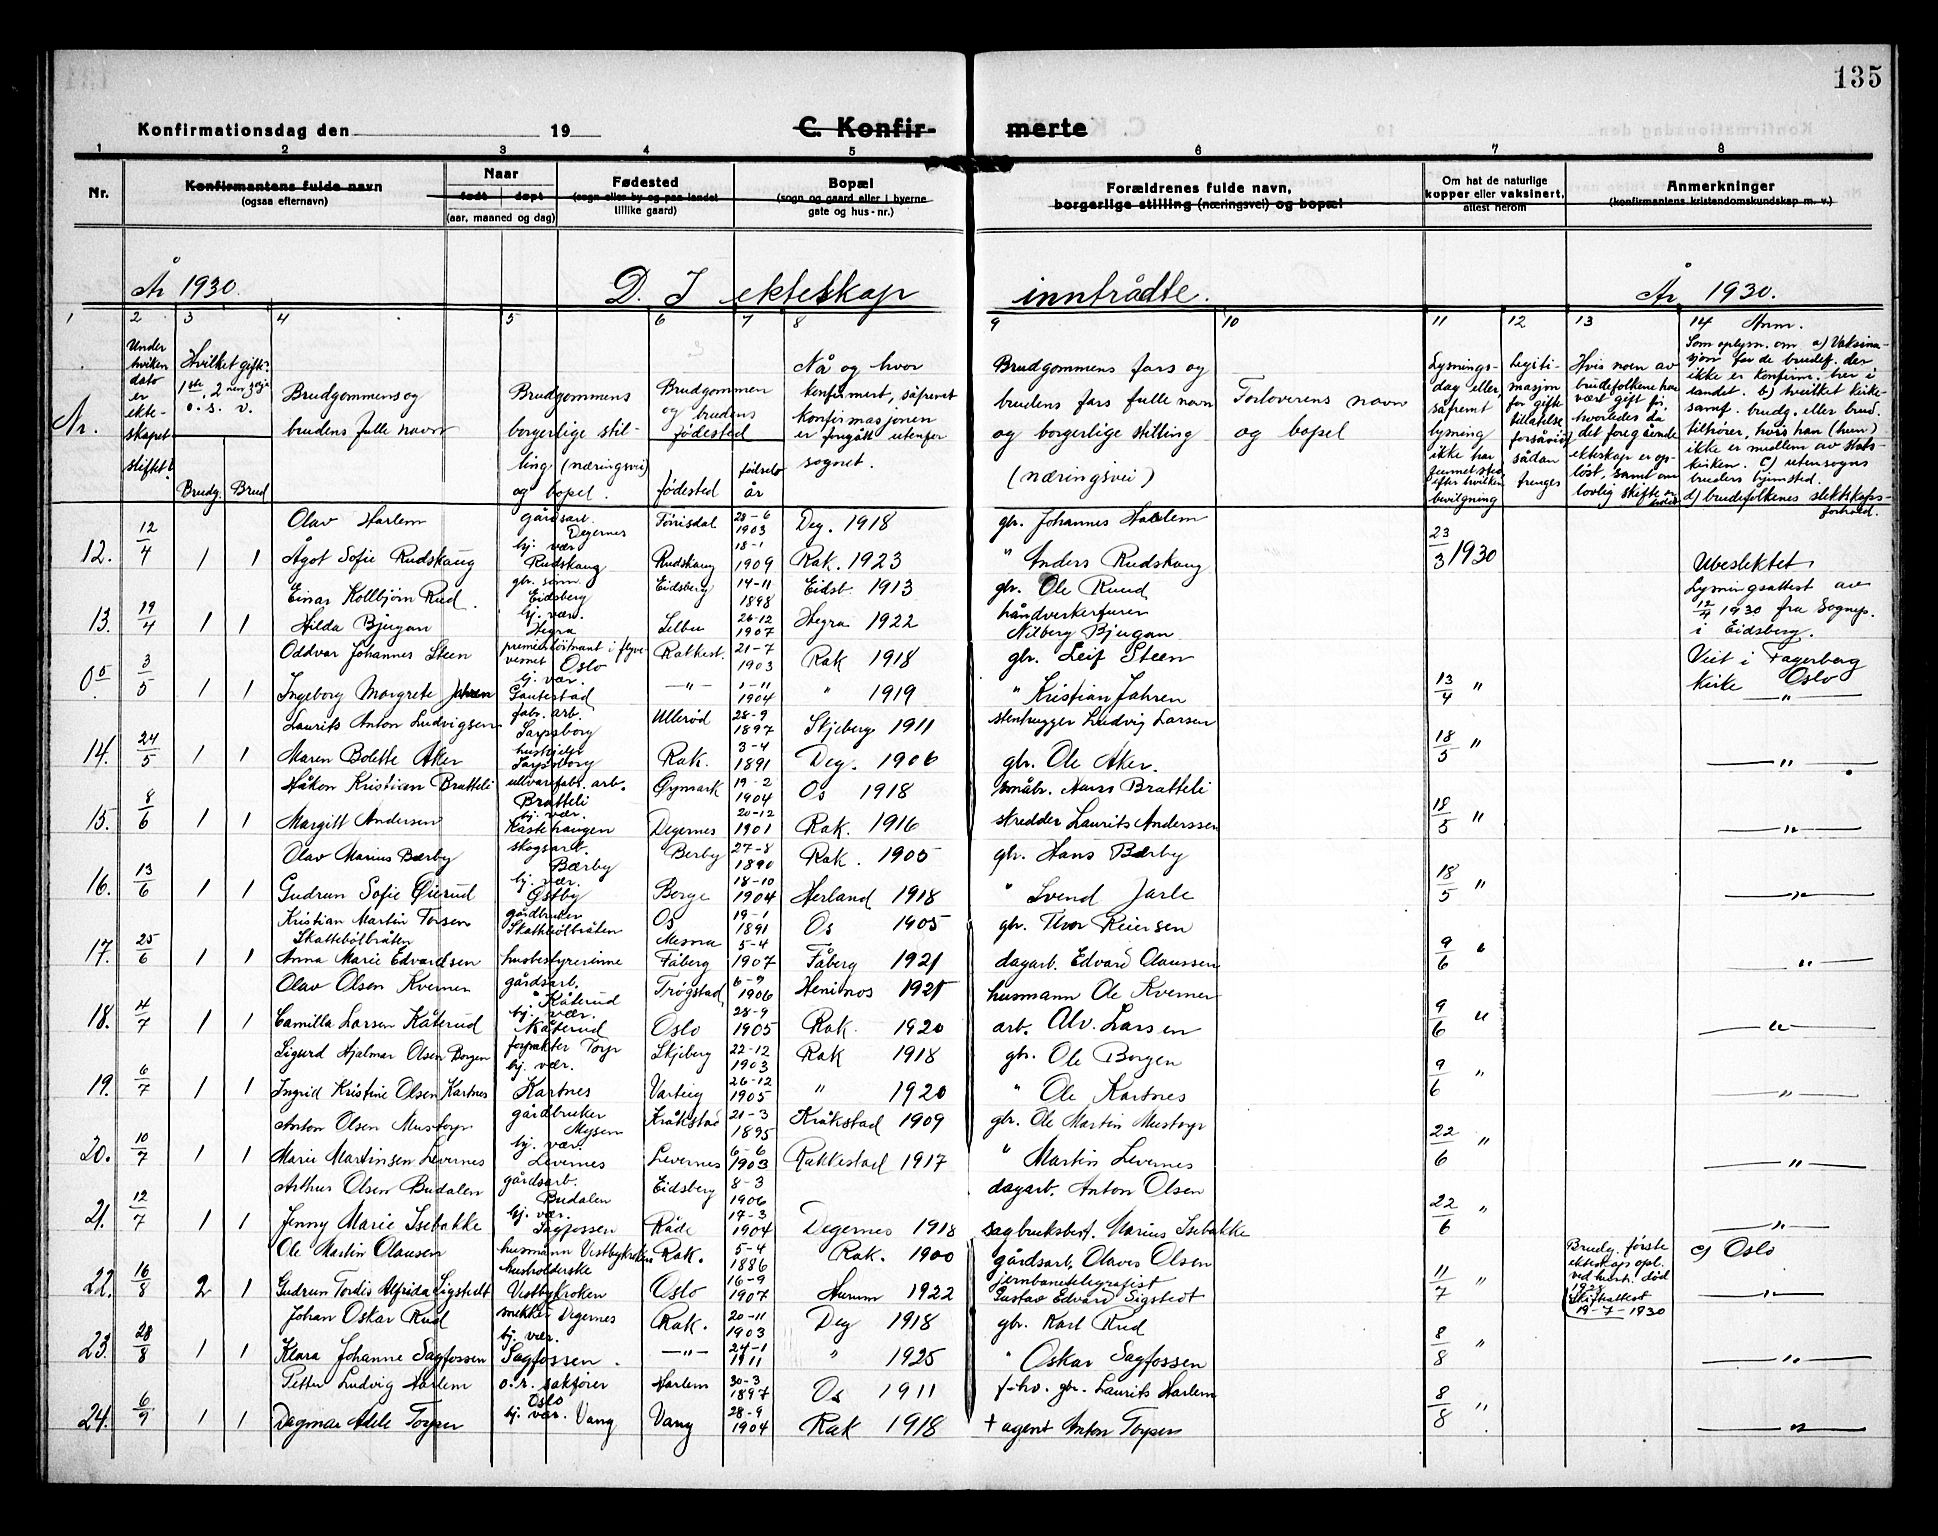 135
Konfirmationsdag den 19
C. Konfirmerte
1 2 3 4 5 6 7 8
Nr.
Konfirmantens fulde navn
(ogsaa efternavn)
Naar
født døpt
(aar, maaned og dag)
Fødested
(sogn eller by og paa landet
tillike gaard)
Bopæl
(sogn og gaard eller i byerne
gate og hus-nr.)
Forældrenes fulde navn,
borgerlige stilling (næringsvei) og bopæl
Om hat de naturlige
kopper eller vaksinert,
attest herom
Anmerkninger
(konfirmantens kristendomskundskap m. v.)
År 1930. D. I ekteskap inntrådte. År 1930.
1 2 3 4 5 6 7 8 9 10 11 12 13 14 Anm.
Nr.
Under hvilken dato er ekteskapet stiftet?
Hvilket gifte: 1ste, 2nen, 3dje o. s. v.
Brudg. Brud
Brudgommens og brudens fulle navn
Brudgommens borgerlige stilling (næringsvei) og bopel.
Brudgommens og brudens fødested
fødested
fødselsår
Nå og hvor konfirmert, såfremt konfirmasjonen er foregått utenfor sognet.
Brudgommens fars og brudens fars fulle navn og borgerlige stilling (næringsvei)
Forloverens navn og bopel
Lysningsdag eller, såfremt lysning ikke har funnet sted efter hvilken bevilgning
Legitimasjon for giftetillatelse forsåvidt sådan trenges
Hvis noen av brudefolkene har vært gift før, hvorledes da det foregående ekteskap er opløst, samt om lovlig skifte
Som oplysn. om a) Vaksinasjon for de brudef. der ikke er konfirm. her i landet. b) hvilket kirkesamf. brudg. eller brud. tilhører, hvis han (hun) ikke er medlem av statskirken. c) utensogns bruders hjemsted. d) brudefolkenes slektskapsforhold.
12. 12/4 1 1 Olav Harlem gårdsarb. Degernes 28-6 1903 Deg. 1918 gbr. Johannes Harlem 23/3 1930
Ågot Sofie Rudskaug hj. vær. Rudskaug Rudskaug 18-1 1909 Rak. 1923 " Anders Rudskaug Ubeslektet
13. 19/4 1 1 Einar Kollbjørn Rud gbr. sønn Eidsberg Eidsberg 14-11 1898 Eidsb. 1913 gbr. Ole Ruud Lysningsattest av 12/4 1930 fra Sognepr. i Eidsberg.
Hilda Bjugan hj. vær. Hegra Selbu 26-12 1907 Hegra 1922 håndverkeren Bjugan
0 3/5 1 1 Oddvar Johannes Steen premierløitnant i flyvevesnet Oslo Rakkest. 21-7 1903 Rak 1918 gbr. Leif Steen Viet i Fagerborg Kirke Oslo
Ingeborg Margrete Jahren hj. vær. Gautestad —"— 1-11 1904 " 1919 " Kristian Jahren 13/4 " —"—
14. 24/5 1 1 Laurits Anton Ludvigsen fabr. arb. Sarpsborg Ullerød 28-9 1897 Skjeberg 1911 stenhugger Ludvig Larsen 18/5 "
Maren Bolette Aker hushjelp Sarpsborg Rak. 3-4 1891 Deg. 1906 gbr. Ole Aker. —"—
15. 8/6 1 1 Håkon Kristian Bratteli ullvarefabr. arb. Bratteli Øymark 19-2 1904 Os 1918 småbr. Hans Bratteli 18/5 "
Margitt Andersen hj. vær. Kastehaugen Degernes 20-12 1901 Rak. 1916 skredder Laurits Anderssen —"—
16. 13/6 1 1 Olav Marius Bærby skogsarb. Bærby Berby 27-8 1890 Rak. 1905 gbr. Hans Bærby 18/5 "
Gudrun Sofie Øierud hj. vær. Østby Borge 18-10 1904 Herland 1918 " Svend Jarle —"—
17. 25/6 1 1 Kristian Martin Torsen Skattebølbråten gårdbruker Skattebølbråten Os 19-1 1891 Os 1905 gbr. Thor Reiersen 9/6 "
Anna Marie Edvardsen husbestyrerinne Mesna Fåberg 5-4 1907 Fåberg 1921 dagarb. Edvard Olaussen —"—
18. 4/7 1 1 Olav Olsen Kvernen gårdsarb. Kåterud Trøgstad 6-9 1906 Henimos 1921 husmann Ole Kverner 9/6 "
Camilla Larsen Kåterud hj. vær. Kåterud Oslo 28-9 1905 Rak. 1920 arb. Alv. Larsen —"—
19. 6/7 1 1 Sigurd Hjalmar Olsen Borgen forpakter Torp Skjeberg 22-12 1903 Rak 1918 gbr. Ole Borgen 9/6 "
Ingrid Kristine Olsen Kartnes hj. vær. Kartnes Varteig 26-12 1905 " 1920 " Ole Kartnes —"—
20. 10/7 1 1 Anton Olsen Mustorp gårdbruker Mysen Kråkstad 21-3 1895 Kråkstad 1909 gbr. Ole Martin Mustorp 22/6 "
Marie Martinsen Levernes hj. vær. Levernes Levernes 6-6 1903 Rakkestad 1917 " Martin Levernes —"—
21. 12/7 1 1 Arthur Olsen Budalen gårdsarb. Budalen Eidsberg 8-3 1906 dagarb. Anton Olsen 22/6 "
Jenny Marie Isebakke hj. vær. Sagfossen Råde 17-3 1904 Degernes 1918 sagbruksbest. Marius Isebakke —"—
22. 16/8 2 1 Ole Martin Olausen husmann Vestbykroken Rak. 5-4 1886 Rak. 1900 gårdsarb. Olaves Olsen 11/7 " Brudg. første ekteskap opl. ved hustr. død Skifteattest 19-7-1930 c) Oslo
Gudrun Tordis Alfrida Sigstedt husholderske Vestbykroken Oslo 16-9 1907 Hurum 1922 jernbanetelegrafist Gustav Edvard Sigstedt —"—
23. 28/8 1 1 Johan Oskar Rud snekker Degernes Rak. 20-11 1903 Deg 1918 gbr. Karl Rud 8/8 "
Klara Johanne Sagfossen hj. vær. Sagfossen. —"— 24-1 1911 " 1925 " Oskar Sagfossen —"—
24. 6/9 1 1 Petter Ludvig Harlem o.r. sakfører Oslo Harlem 30-3 1897 Os 1911 f-hv. gbr. Laurits Harlem 8/8 "
Dagmar Adele Torper hj. vær. Vang Vang 28-9 1904 Rak 1918 + agent Anton Torpen —"—